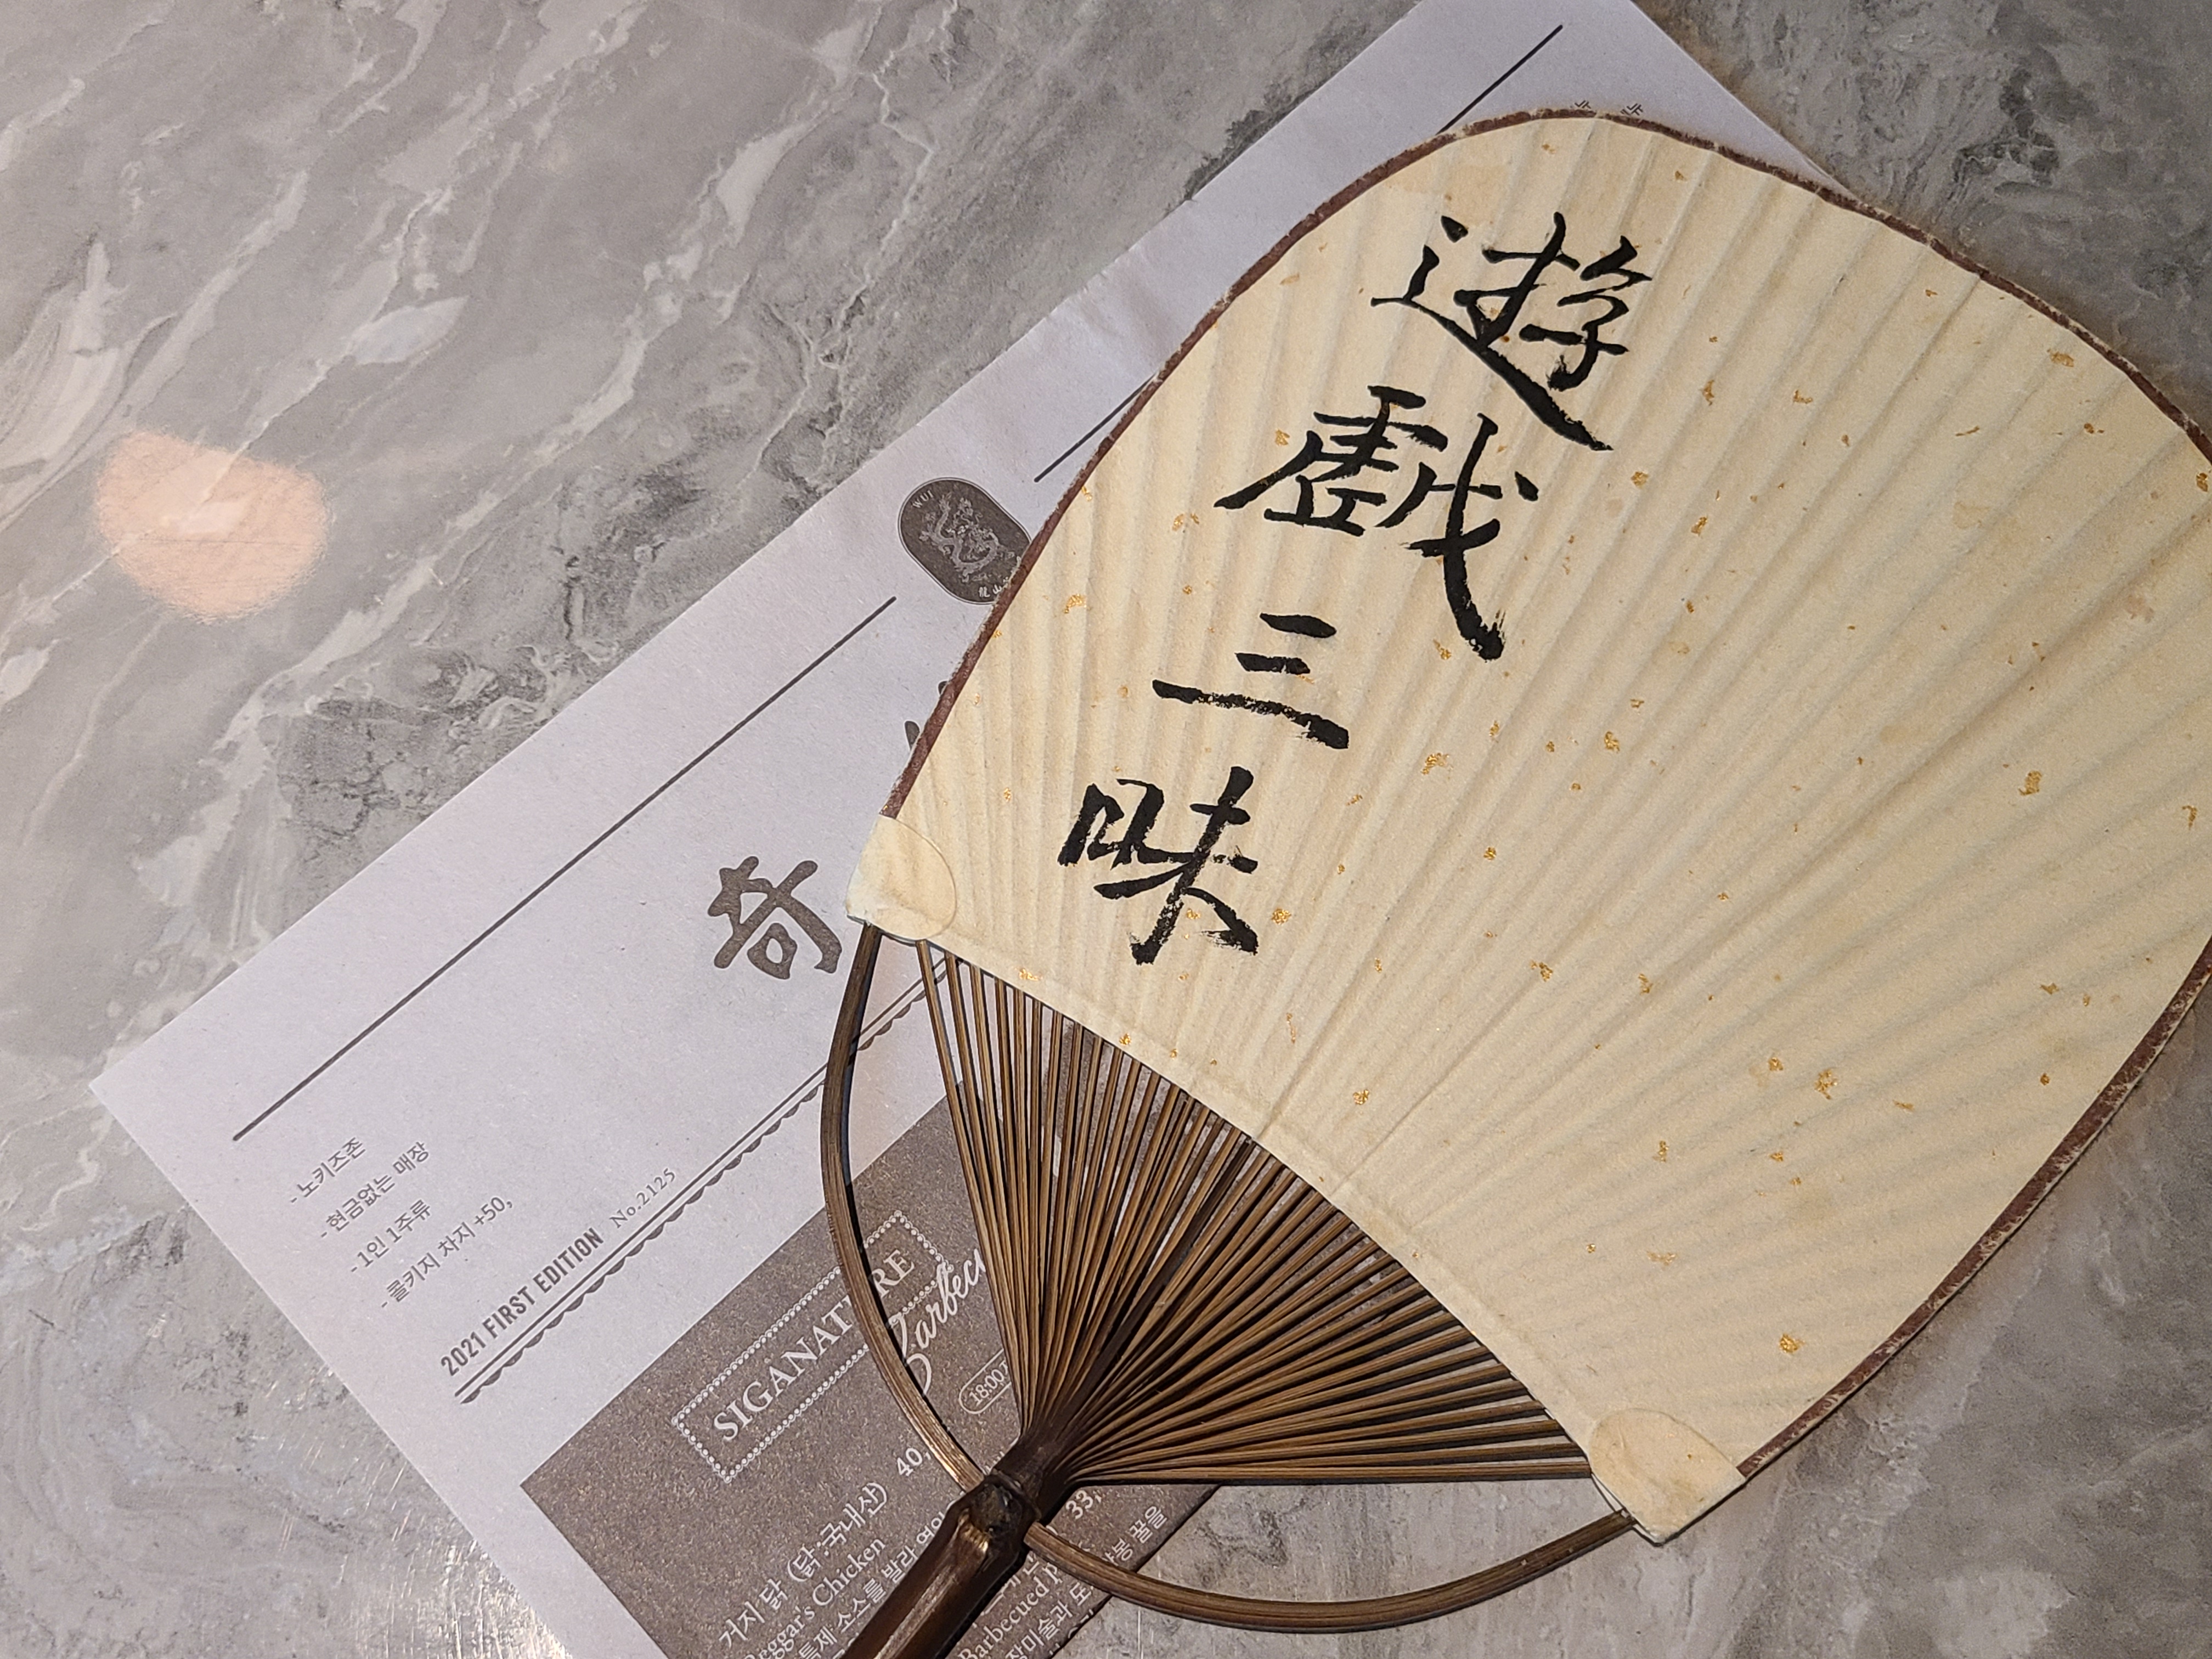 遊戲三昧
WUI
龍山
奇
- 노키즈존
- 현금없는 매장
- 1인 1주류
- 콜키지 차지 +50,
2021 FIRST EDITION No.2125
SIGANATURE
Barbecu
18:00
거지 닭 (닭:국내산) 40,
Beggar's Chicken
특제 소스를 발라 연잎
33,
Barbecued P